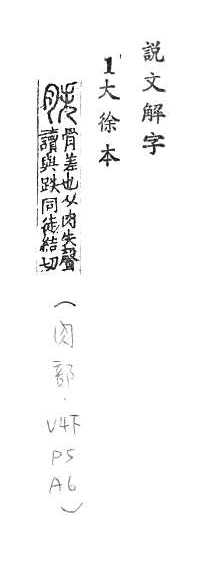 說文解字
1大徐本
胅 骨差也从肉失聲
讀與跌同徒結切
(肉部.V4下
P5
A6)